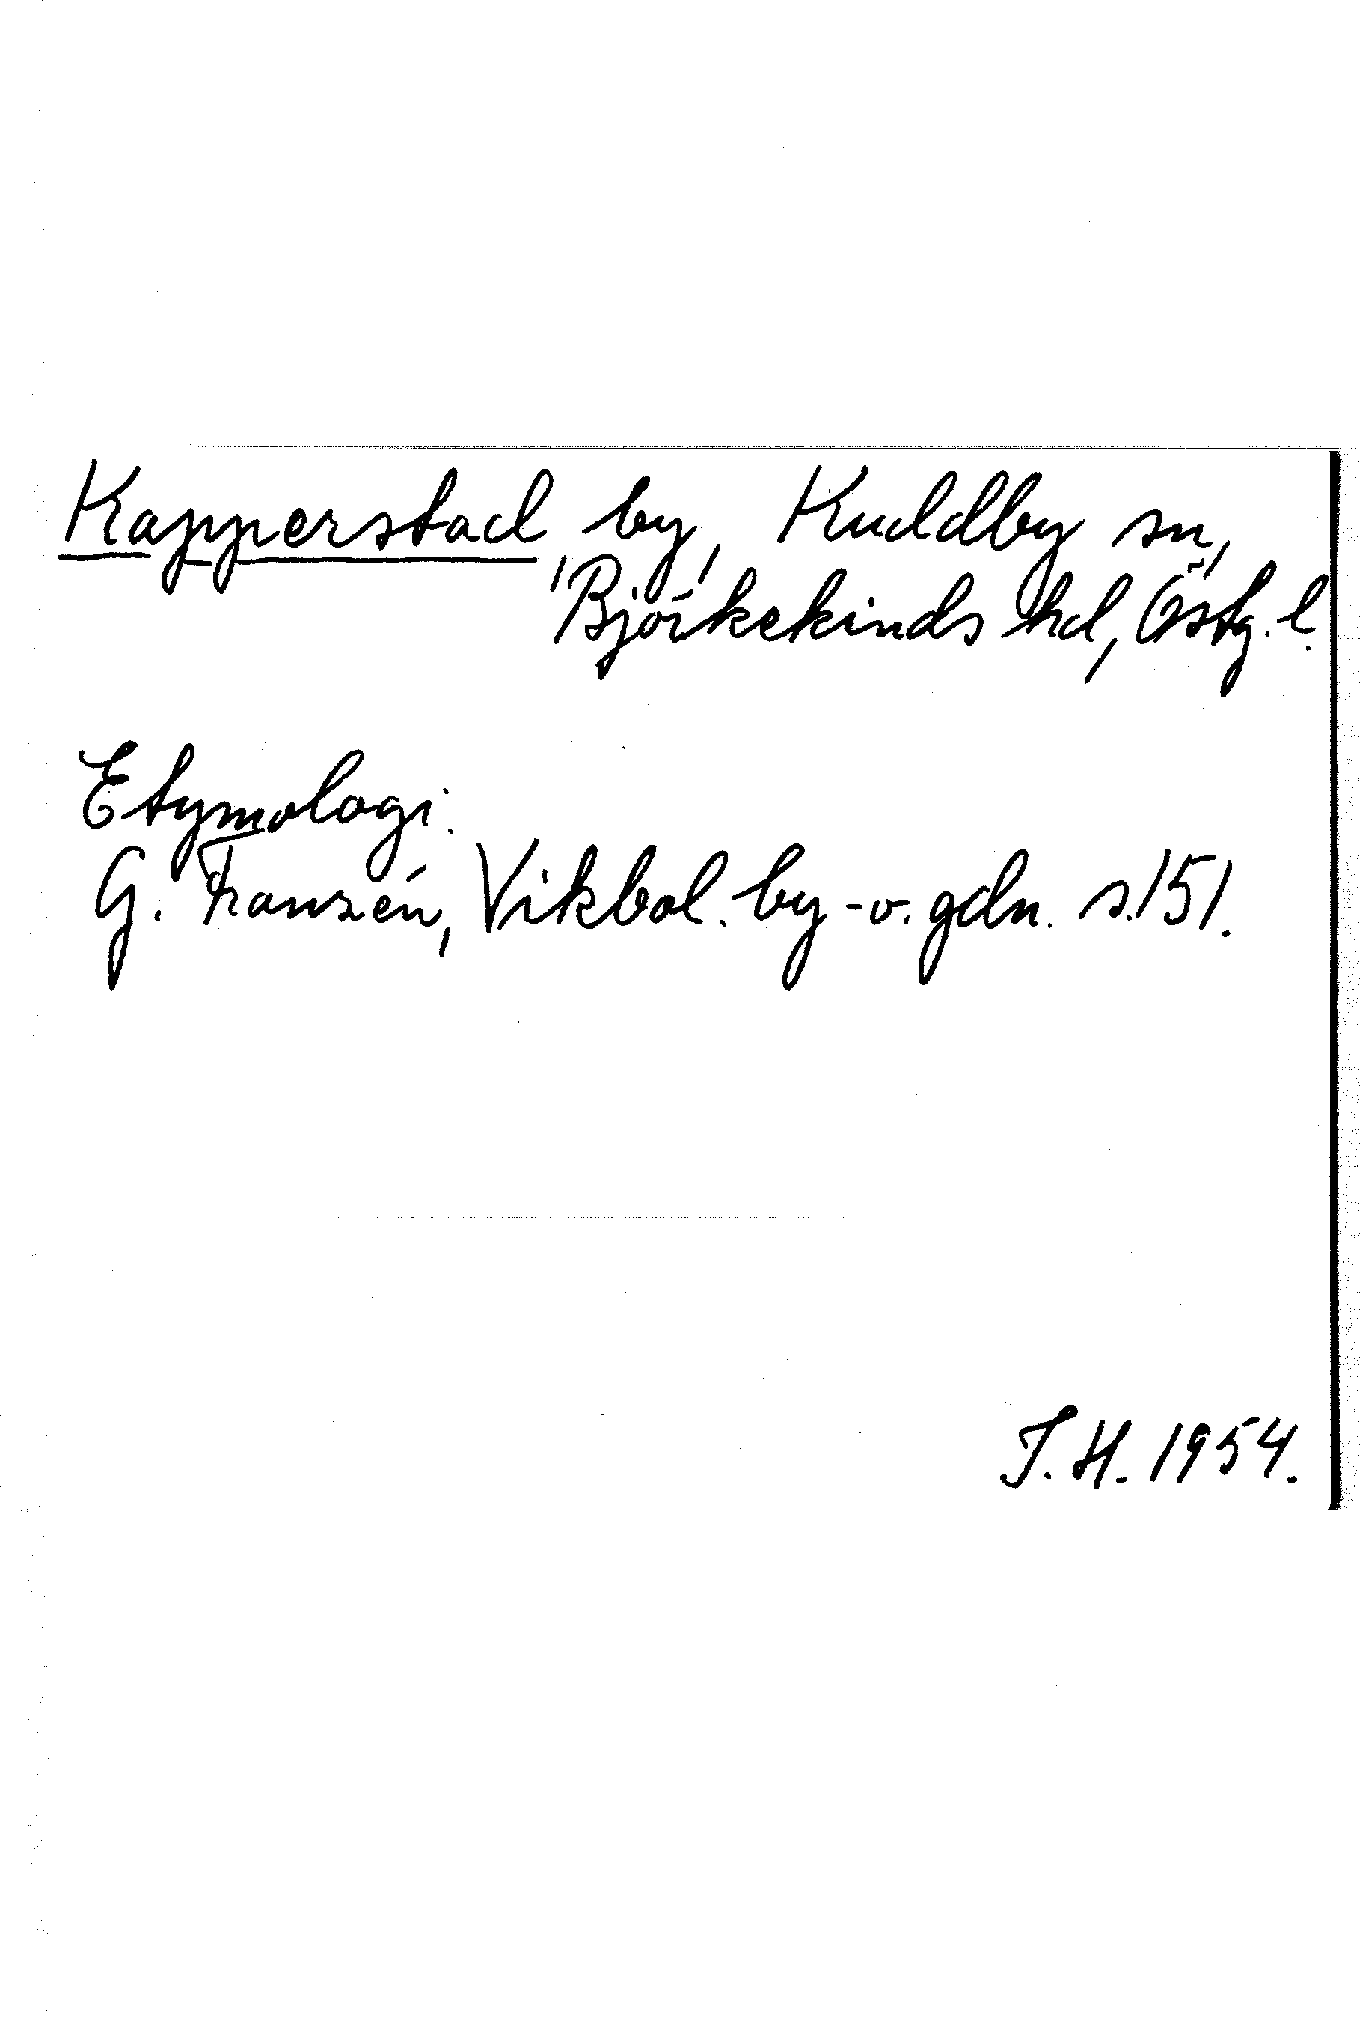 Kapperstad by, Kuddby sn,
Björkekinds hd, Östg. l.
Etymologi.
G. Franzén, Vikbol. by- o. gdn. s.151.
J. H. 1954.